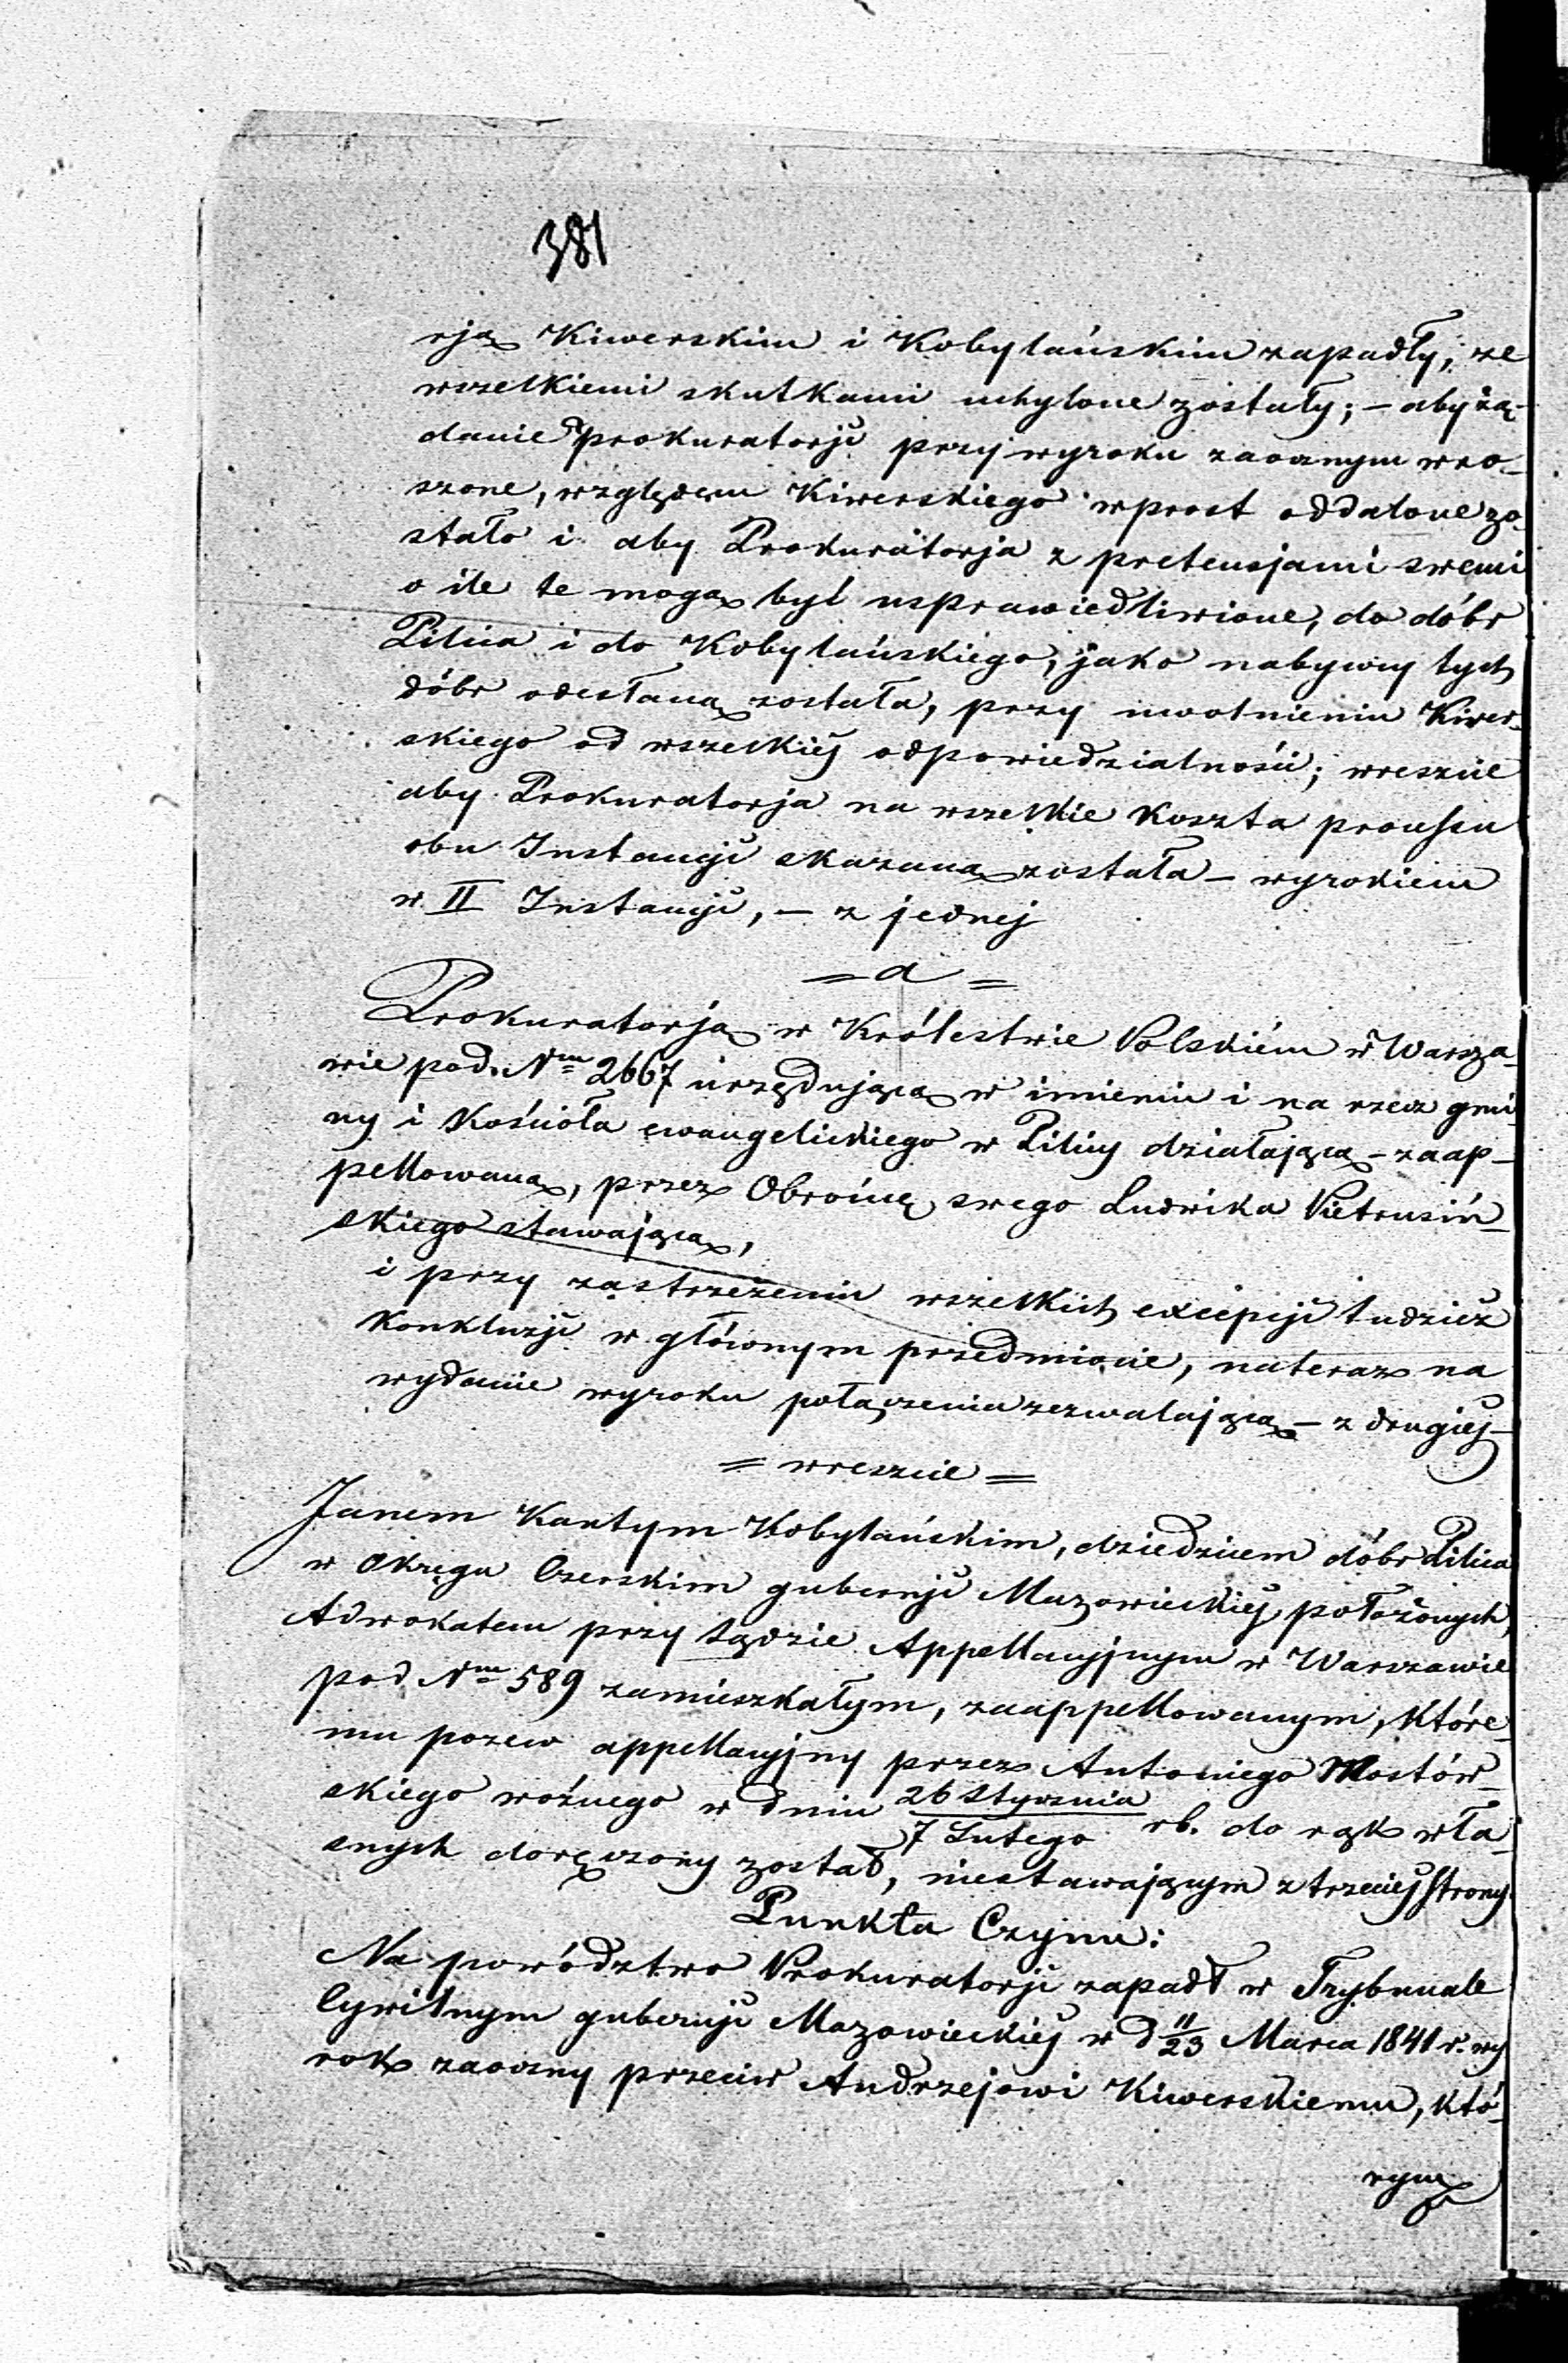 381
rją Kiwerskim i Kobylańskim zapadły, ze
wszelkiemi skutkami uchylone zostały; – aby żą-
danie Prokuratorji przy wyroku zaocznym wno-
szone, względem Kiwerskiego wprost oddalone zo-
stało i aby Prokuratorja z pretensjami swemi
o ile te mogą być usprawiedliwione, do dóbr
Pilica i do Kobylańskiego, jako nabywcy tych
dóbr odesłaną została, przy uwolnieniu Kiwer-
skiego od wszelkiéj odpowiedzialności; wreszcie
aby Prokuratorja na wszelkie koszta processu
obu Instancji skazaną została – wyrokiem
w II Instancji, – z jednej
= a =
Prokuratorją w Królestwie Polskiém w Warsza-
wie pod Nm 2667 urzędującą w imieniu i na rzecz gmi-
ny i Kościoła ewangelickiego w Pilicy działającą – zaap-
pellowaną, przez Obrońcę swego Ludwika Pietrusiń-
skiego stawającą,
i przy zastrzeżeniu wszelkich excepcji tudzież
Konkluzji w głównym przedmiocie, nateraz na
wydanie wyroku połączenia zezwalającą – z drugiéj –
= wreszcie =
Janem Kantym Kobylańskim, dziedzicem dóbr Pilica
w Okręgu Czerskim gubernji Mazowieckiéj położonych,
Adwokatem przy Sądzie Appellacyjnym w Warszawie
pod Nm 589 zamieszkałym, zaappellowanym, które-
mu pozew appellacyjny przez Antoniego Mostow-
skiego woźnego w dniu 26 Stycznia / 7 Lutego rb. do rąk wła-
snych doręczony został, niestawającym z trzeciéj strony.
Punkta Czynu:
Na powództwo Prokuratorji zapadł w Trybunale
Cywilnym gubernji Mazowieckiéj w d 11/23 Marca 1841 r. wy
rok zaoczny przeciw Andrzejowi Kiwerskiemu, któ-
rym